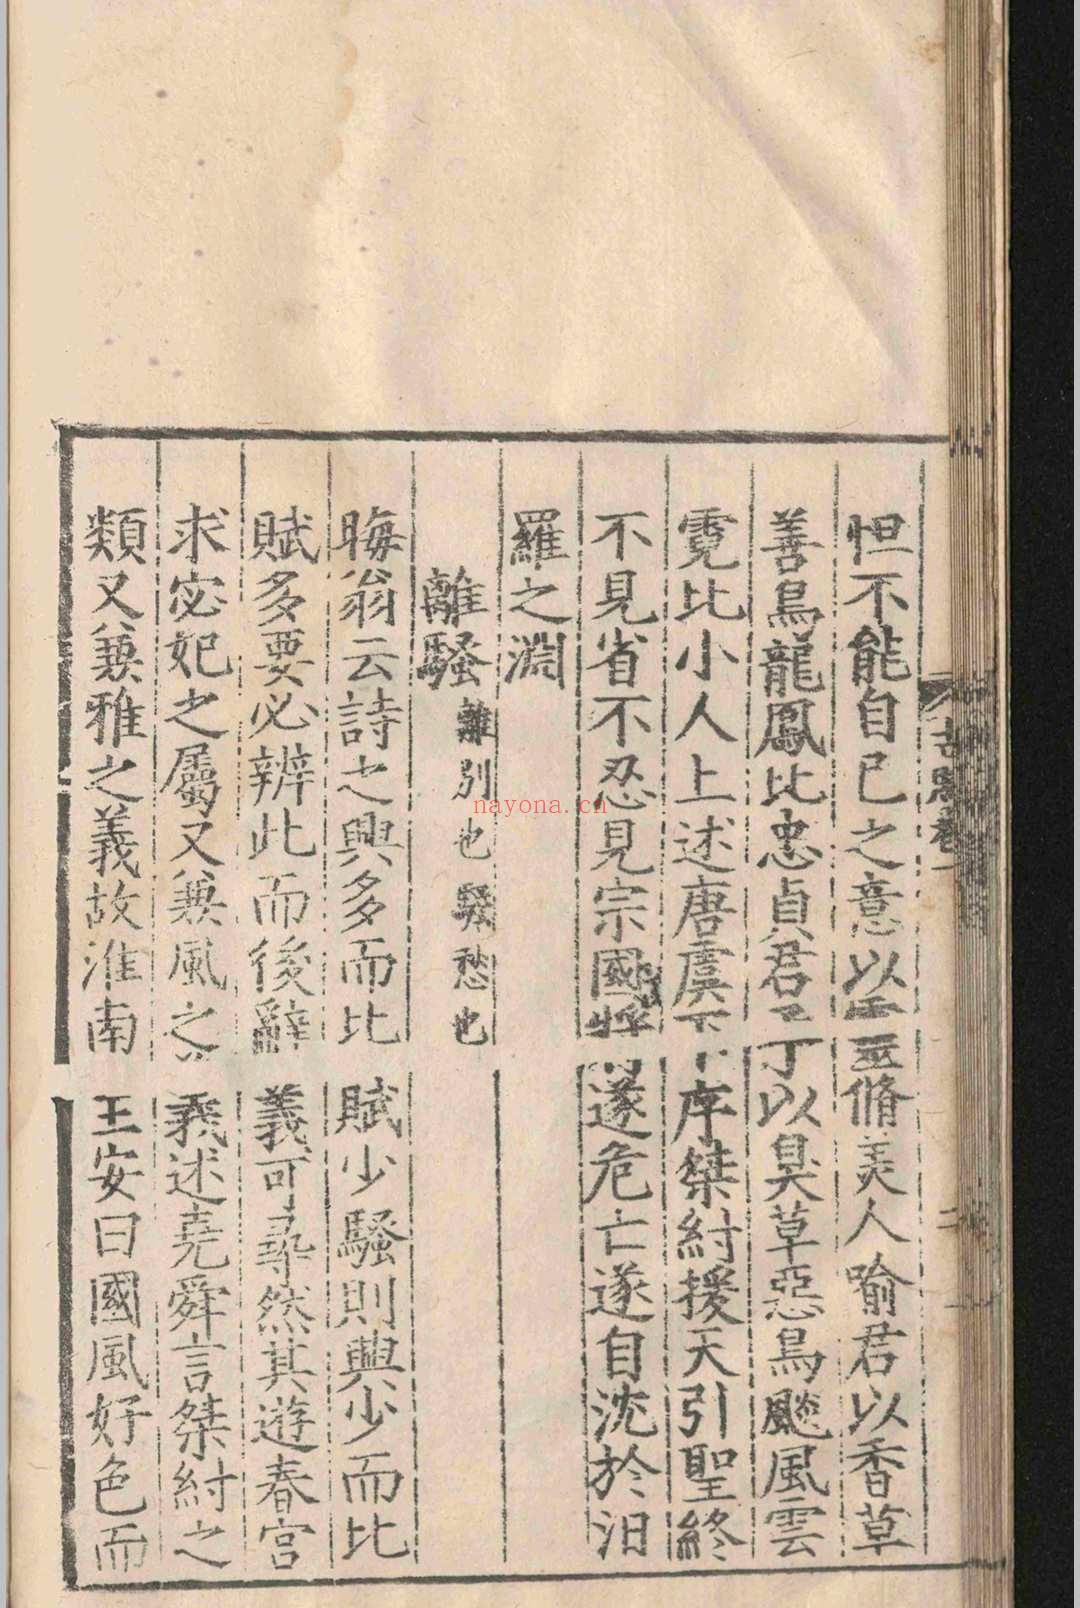 怛不能自已之意以靈脩美人喻君以香草
善鳥龍鳳比忠貞君子以臭草惡鳥飈風雲
霓比小人上述唐虞下序桀紂援天引聖終
不見省不忍見宗國將遂危亡遂自沈於汨
羅之淵
離騷離別也騷愁也
晦翁云詩之興多而比賦少騷則興少而比
賦多要必辨此而後辭義可尋然其遊春宮
求宓妃之屬又兼風之義述堯舜言桀紂之
類又兼雅之義故淮南王安曰國風好色而
nayona.cn